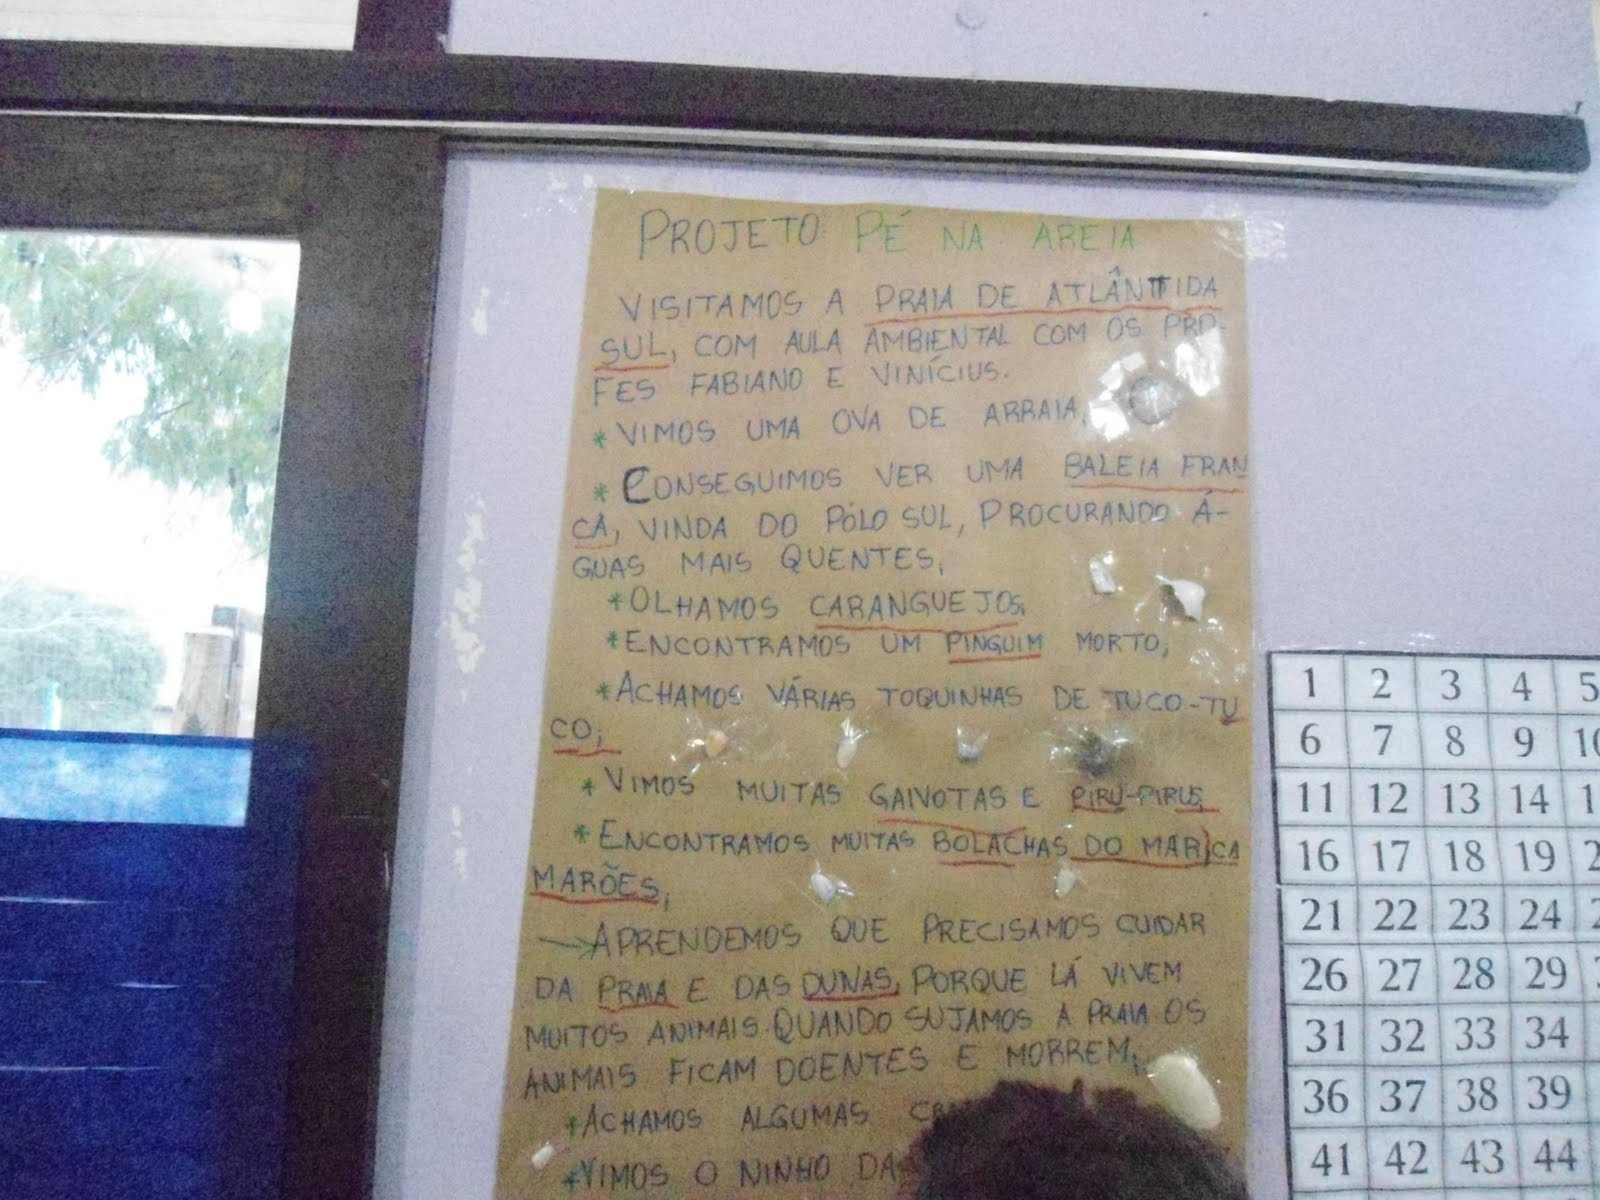 PROJETO: PÉ NA AREIA
VISITAMOS A PRAIA DE ATLÂNTIDA
SUL, COM AULA AMBIENTAL COM OS PRO-
FES FABIANO E VINÍCIUS.
*VIMOS UMA OVA DE ARRAIA,
*CONSEGUIMOS VER UMA BALEIA FRAN
CA, VINDA DO PÓLO SUL, PROCURANDO Á-
GUAS MAIS QUENTES,
*OLHAMOS CARANGUEJOS,
*ENCONTRAMOS UM PINGUIM MORTO,
*ACHAMOS VÁRIAS TOQUINHAS DE TUCO-TU
CO,
*VIMOS MUITAS GAIVOTAS E PIRU-PIRUS,
*ENCONTRAMOS MUITAS BOLACHAS DO MAR, CA
MARÕES,
→APRENDEMOS QUE PRECISAMOS CUIDAR
DA PRAIA E DAS DUNAS, PORQUE LÁ VIVEM
MUITOS ANIMAIS. QUANDO SUJAMOS A PRAIA OS
ANIMAIS FICAM DOENTES E MORREM,
*ACHAMOS ALGUMAS
*VIMOS O NINHO DA
1 2 3 4 5
6 7 8 9 10
11 12 13 14
16 17 18 19
21 22 23 24
26 27 28 29
31 32 33 34
36 37 38 39
41 42 43 44